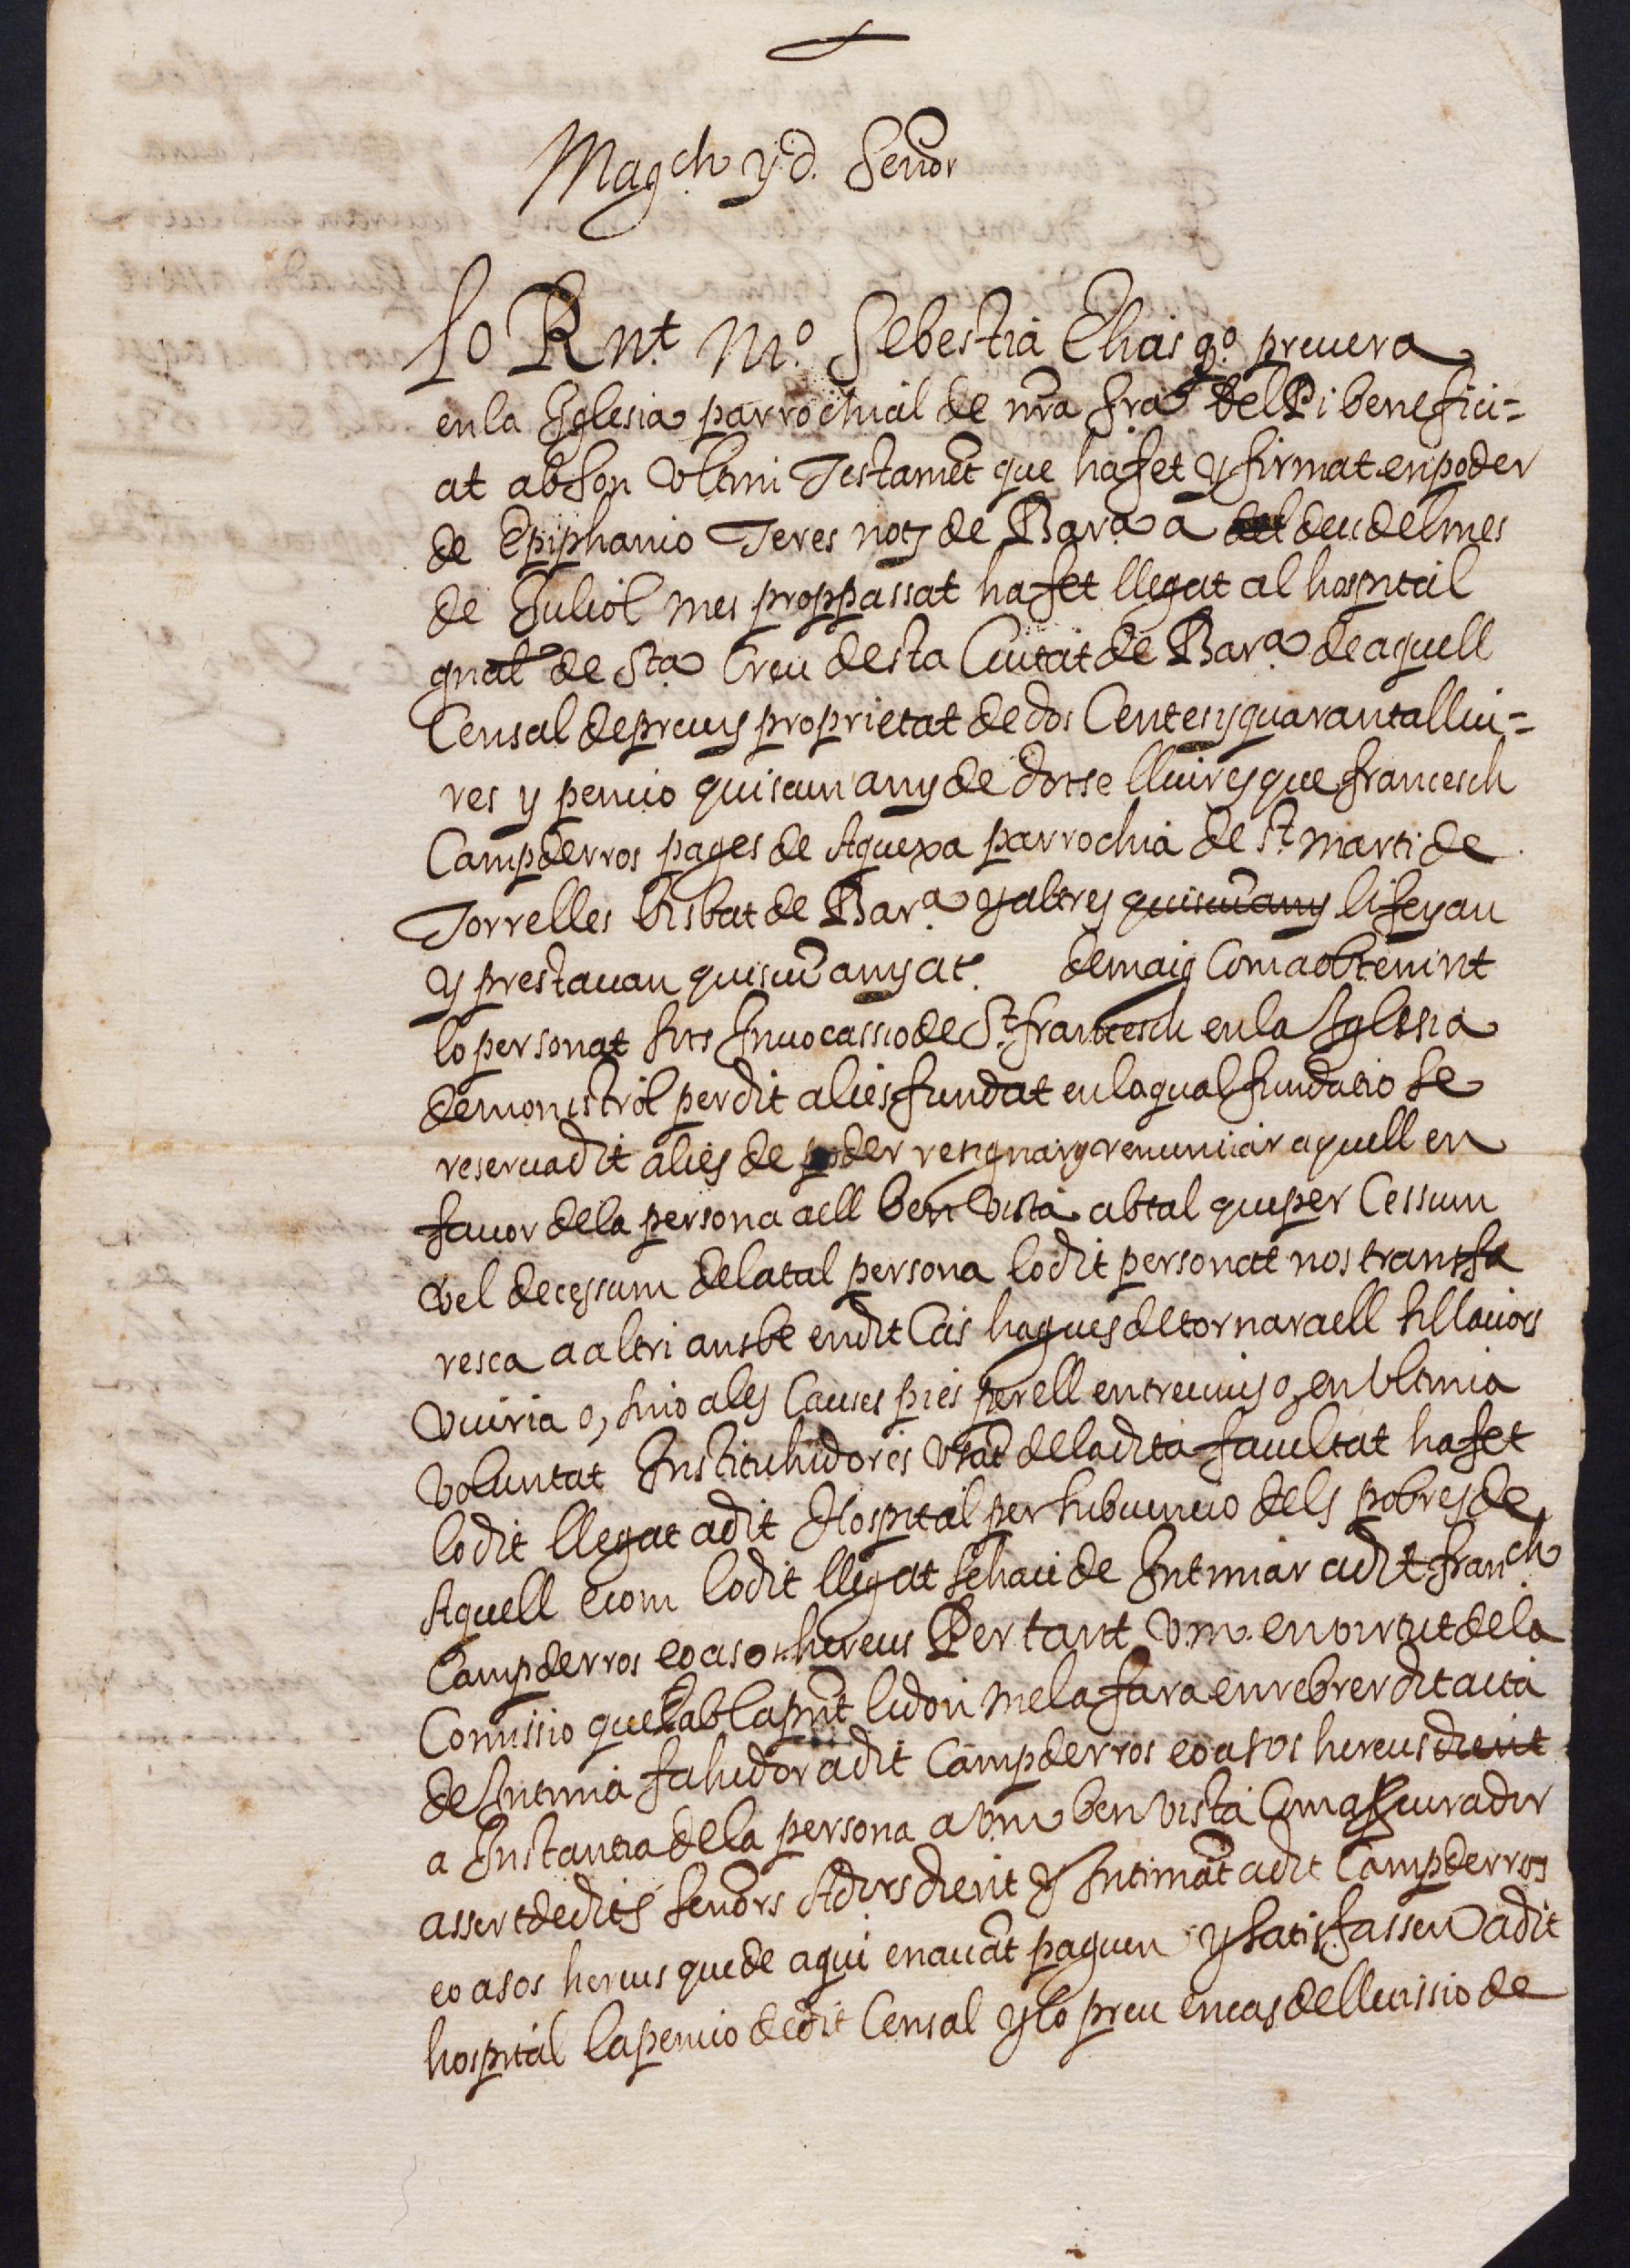 Magch y d. Señor
Lo Rnt. Mo. Sebestia Elias qo. prevera
en la Iglesia parrochial de nra sra del Pi benefici=
at ab son ultim Testamēt que ha fet y firmat en poder
de Epiphanio Teres not de Bara. a deu del mes
de Juliol mes proppassat ha fet llegat al hospital
gnāl de Sta Creu desta Ciutat de Bara. de aquell
Censal de preu y proprietat de dos Centes y quaranta lliu=
res y pencio quiscun any de dotse lliures que francesch
Campderros pages de Aquexa parrochia de St. Marti de
Torrelles bisbat de Bara. y altres quiscū any li feyan
y prestavan quiscū any at. de maig Com a obtenint
lo personat sots Invocassio de St. francesch en la Iglesia
de monistrol per dit alies fundat en la qual fundacio se
reserva dit alies de poder resignar y renunciar aquell en
favor de la persona a ell ben vista ab tal que per Cessum
vel decessum de la tal persona lo dit personat nos transfe
resca a altri ans be en dit Cas hagues de tornar a ell si llavors
viuria o, sino a les Causes pies per ell entre vius o, en ultima
voluntat Instituhidores usāt de la dita facultat ha fet
lo dit llegat a dit Hospital per subvencio dels pobres de
Aquell e com lo dit llegat se haie de Intimar a dit Franch
Campderros eo a sos hereus Per tant v.m. en virtut de la
Comissio quel ab la pnt li don me la fara en rebrer dit acta
de Intima fahedor a dit Campderros eo a sos hereus dient
a Instantia de la persona a vm ben vista Com a Pcurador
assert de dits Señors Adors dient y Intimāt a dit Campderros
eo a sos hereus que de aqui en avāt paguen y satisfassen a dit
hospital la pencio de dit Censal y lo preu en cas de lluissio de